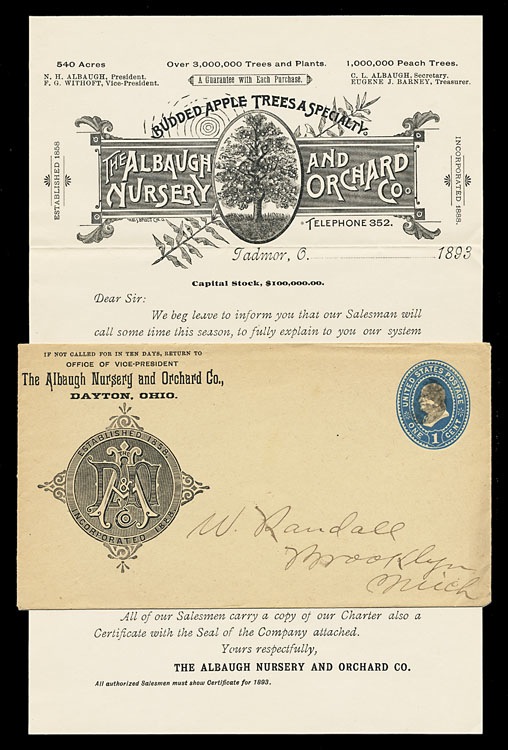 540 Acres
Over 3,000,000 Trees and Plants.
1,000,000 Peach Trees.
N. H. ALBAUGH, President.
F. G. WITHOFT, Vice-President.
A Guarantee with Each Purchase.
C. L. ALBAUGH, Secretary.
EUGENE J. BARNEY, Treasurer.
BUDDED APPLE TREES A SPECIALTY.
ESTABLISHED 1858
THE ALBAUGH NURSERY
AND ORCHARD Co.
INCORPORATED 1888.
TELEPHONE 352.
Tadmor, O. 1893
Capital Stock, $100,000.00.
Dear Sir:
We beg leave to inform you that our Salesman will
call some time this season, to fully explain to you our system
IF NOT CALLED FOR IN TEN DAYS, RETURN TO
OFFICE OF VICE-PRESIDENT
The Albaugh Nursery and Orchard Co.,
DAYTON, OHIO.
ESTABLISHED 1858
INCORPORATED 1888
UNITED STATES POSTAGE
ONE 1 CENT
W. Randall
Brooklyn
Mich
All of our Salesmen carry a copy of our Charter also a
Certificate with the Seal of the Company attached.
Yours respectfully,
THE ALBAUGH NURSERY AND ORCHARD CO.
All authorized Salesmen must show Certificate for 1893.